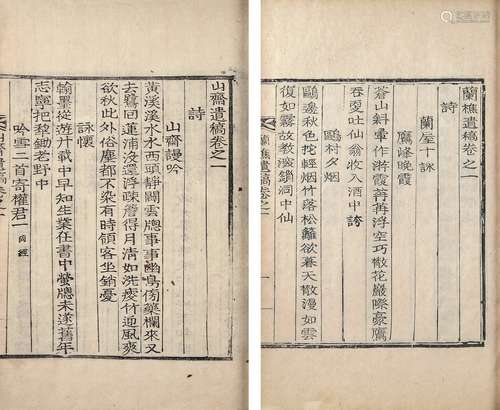 蘭樵遺稿卷之一
詩
蘭屋十詠
鷹峰晚霞
蒼山斜暈作游霞冉冉浮空巧散花巖際豪鷹
吞更吐仙翁收入酒中誇
鷗村夕烟
鷗邊秋色拕輕烟竹落松籬欲暮天散漫如雲
復如霧故教洞中仙
蘭樵遺稿卷之一
山齋遺稿卷之一
詩
山齋謾吟
黃溪溪水水西頭靜闢雲牕事事幽鳥傍藥欄來又
去鷺回蓮浦沒還浮疎簷得月清如洗瘦竹迎風爽
欲秋此外俗塵都不染有時領客坐銷憂
詠懷
翰墨從遊卄載中早知生業在書中螢牕未遂舊年
志寧把犁鋤老野中
吟雪二首寄權君一
山齋遺稿卷之一